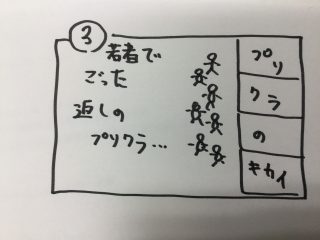 3
若者で
ごった
返しの
プリクラ…
プリ
クラ
の
キカイ